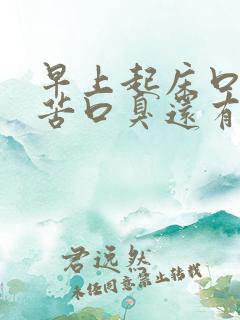 早上起床口
苦口臭還有
君远然
未经同意禁止转载